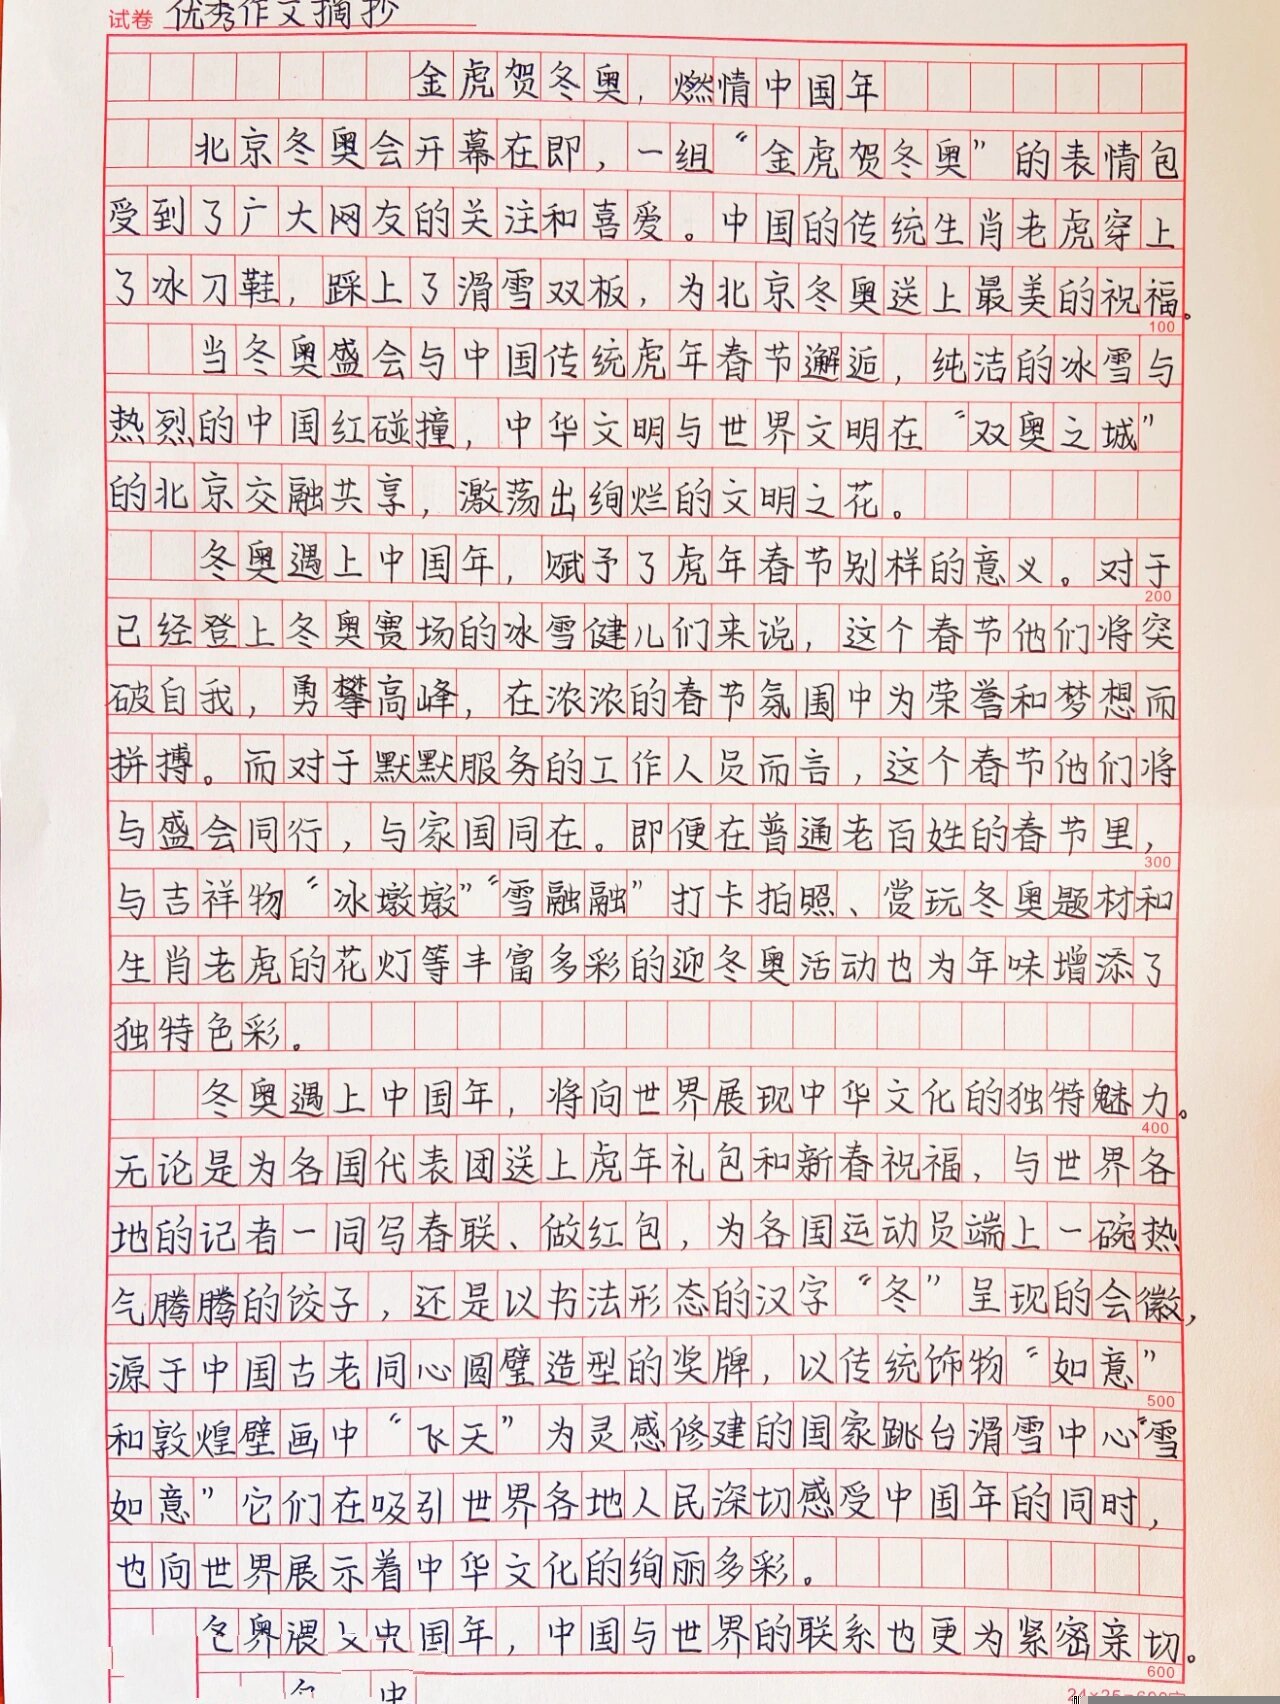 试卷 优秀作文摘抄
金虎贺冬奥，燃情中国年
北京冬奥会开幕在即，一组“金虎贺冬奥”的表情包
受到了广大网友的关注和喜爱。中国的传统生肖老虎穿上
了冰刀鞋，踩上了滑雪双板，为北京冬奥送上最美的祝福。
100
当冬奥盛会与中国传统虎年春节邂逅，纯洁的冰雪与
热烈的中国红碰撞，中华文明与世界文明在“双奥之城”
的北京交融共享，激荡出绚烂的文明之花。
冬奥遇上中国年，赋予了虎年春节别样的意义。对于
200
已经登上冬奥赛场的冰雪健儿们来说，这个春节他们将突
破自我，勇攀高峰，在浓浓的春节氛围中为荣誉和梦想而
拼搏。而对于默默服务的工作人员而言，这个春节他们将
与盛会同行，与家国同在。即便在普通老百姓的春节里，
300
与吉祥物“冰墩墩”“雪融融”打卡拍照、赏玩冬奥题材和
生肖老虎的花灯等丰富多彩的迎冬奥活动也为年味增添了
独特色彩。
冬奥遇上中国年，将向世界展现中华文化的独特魅力。
400
无论是为各国代表团送上虎年礼包和新春祝福，与世界各
地的记者一同写春联、做红包，为各国运动员端上一碗热
气腾腾的饺子，还是以书法形态的汉字“冬”呈现的会徽，
源于中国古老同心圆璧造型的奖牌，以传统饰物“如意”
500
和敦煌壁画中“飞天”为灵感修建的国家跳台滑雪中心“雪
如意”它们在吸引世界各地人民深切感受中国年的同时，
也向世界展示着中华文化的绚丽多彩。
国年，中国与世界的联系也更为紧密亲切。
600